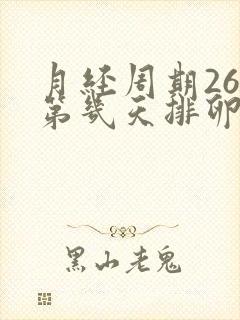 月经周期26
第几天排卵
黑山老鬼